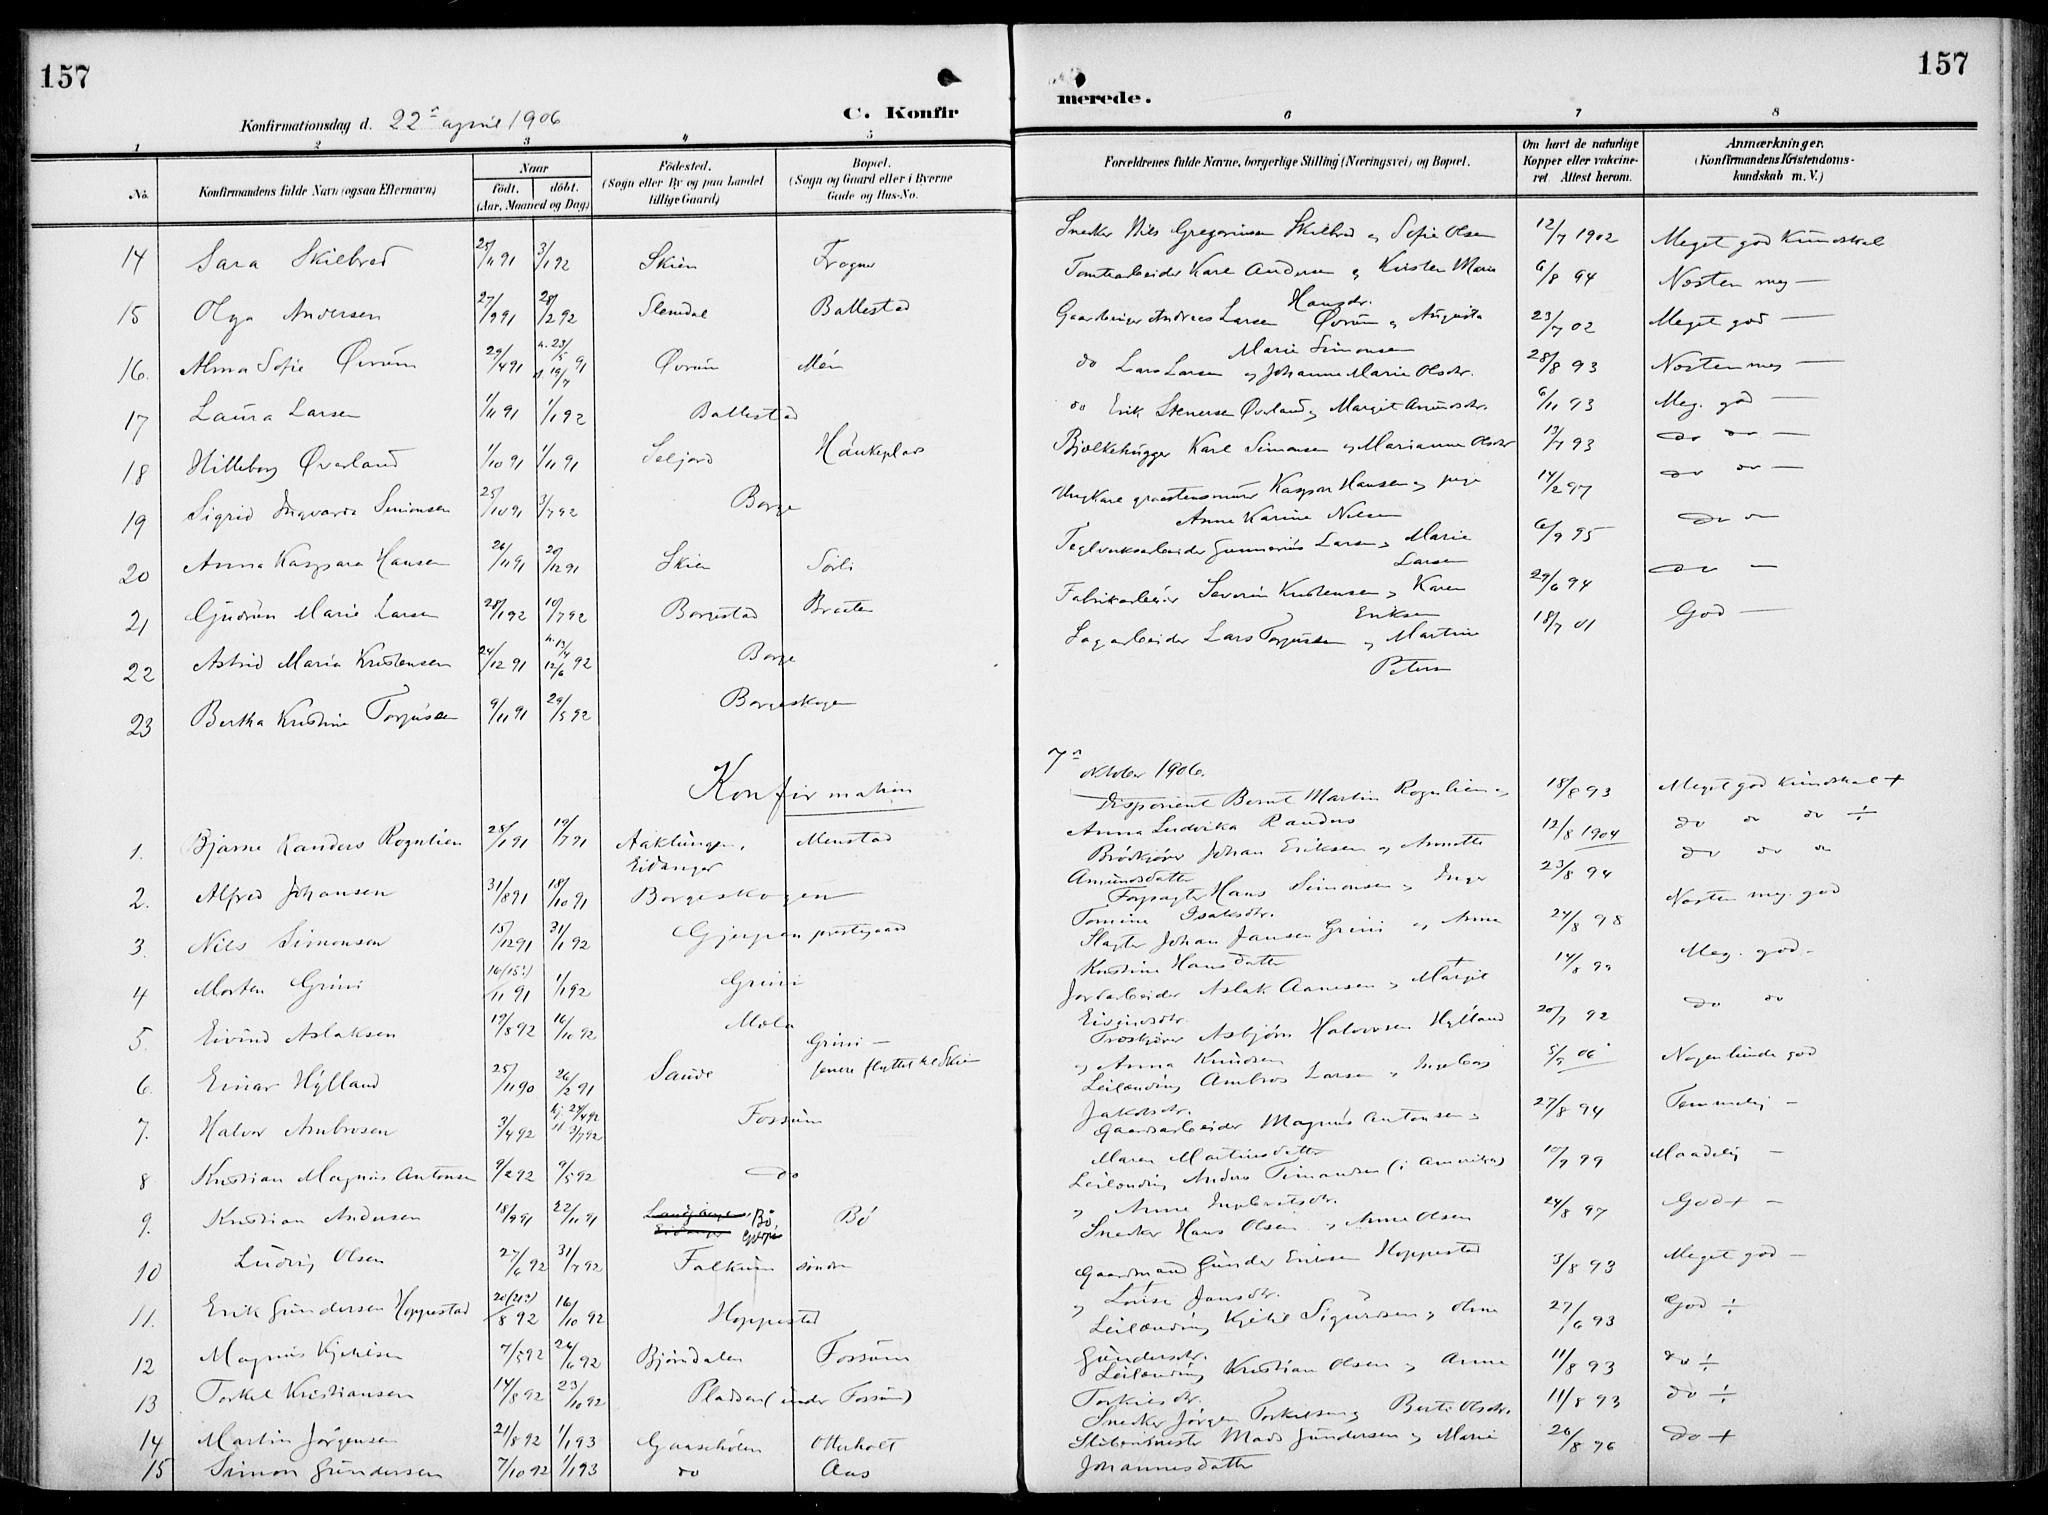 157
157
Konfirmationsdag d. 22 april 1906
C. Konfir
merede.
1
2
3
4
5
6
7
8
No.
Konfirmandens fulde Navn (ogsaa Efternavn)
Naar
født.
døbt.
(Aar, Maaned og Dag)
Fødested.
(Sogn eller By og paa Landet
tillige Gaard)
Bopæl.
(Sogn og Gaard eller i Byerne
Gade og Hus-No.
Forældrenes fulde Navne, borgerlige Stilling (Næringsvei) og Bopæl.
Om havt de naturlige
Kopper eller vakcine-
ret. Attest herom.
Anmærkninger.
(Konfirmandens Kristendoms-
kundskab m. V.)
14 Sara Skilbred 25/11 91 3/1 92 Skien Frogner
15 Olga Andersen 27/9 91 28/2 92 Slemdal Ballestad
16. Alma Sofie Øvrum 29/4 91 Øvrum Mén
17 Laura Larsen 1/11 91 1/1 92 Ballestad
18 Hilleborg Øverland 1/10 91 1/11 91 Seljord Haukeplads
19 Sigrid Ingvarda Simonsen 25/10 91 3/7 92 Borge
20 Anna Kaspara Hansen 26/11 91 20/12 91 Skien Sörli
21 Gudrun Marie Larsen 28/1 92 10/7 92 Borgestad Braaten
22 Astrid Maria Kristensen 24/12 91 h. 13/4 12/6 92 Borge
23 Bertha Kristine Torjussen 9/11 91 29/5 92 Borgeskogen
Snedker Nils Gregoriusen Skilbred og Sofie Olsen 12/7 1902 Meget god Kundskab
Tomtearbeider Karl Andersen og Kristen Marie 6/8 94 Næsten meg —
Hansdr.
Gaardeier Andreas Larsen Øvrum og Augusta 23/7 02 Meget god —
Marie Simonsen
do Lars Larsen og Johanne Marie Olsdr. 28/8 93 Næsten meg —
do Erik Stenersen Øverland og Margit Amundsdr. 6/11 93 Meg. god —
Bjælkehugger Karl Simonsen og Marianne Olsdr 13/7 93 do do —
Ungkarl graastensmurer Kaspar Hansen og pige 14/2 97 do do —
Anne Karine Nilsen
Teglverksarbeider Gunnerius Larsen og Marie 6/9 95 do do
Larsen
Fabrikarbeider Severin Kristensen og Karen 29/6 94 do —
Eriksen
Sagarbeider Lars Torjussen og Martine 18/7 01 God —
Petersn
Konfirmation
7 oktober 1906.
1. Bjarne Randers Rognlien 28/1 91 19/7 91 Aaklungen, Menstad
Eidanger
2. Alfred Johansen 31/8 91 18/10 91 Borgeskogen
3. Nils Simonsen 15/12 91 31/1 92 Gjerpen prestegaard
4 Morten Grini 16(15?)/11 91 1/1 92 Grini
5. Eivind Aslaksen 19/8 92 16/10 92 Mæla
6. Einar Hylland 25/11 90 26/2 91 Saude Grini —
senere flyttet til Skien
7. Halvor Ambrosen 3/4 92 3/7 92 Fossum
8 Kristian Magnus Antonsen 9/2 92 9/5 92 do
9. Kristian Andersen 18/9 91 22/11 91 Bö Bö
Gjerpen
10 Ludvig Olsen 27/6 92 31/7 92 Falkum søndre
11. Erik Gundersen Hoppestad 20(21?)/8 92 16/10 92 Hoppestad
12 Magnus Kjetilsen 7/5 92 26/6 92 Bjørndalen Fossum
13 Torkel Kristiansen 14/8 92 23/10 92 Pladsen (under Fossum)
14 Martin Jørgensen 21/8 92 1/1 93 Gaaseholen Otterholt
15 Simon Gundersen 7/10 92 1/1 93 do Aas
Disponent Bernt Martin Rognlien og 18/8 93 Meget god kundskab +
Anna Ludvika Randers
Brødkjører Johan Eriksen og Annette 12/8 1904 do do do ÷
Amundsdatter
Forpagter Hans Simonsen og Inger 23/8 94 do do do
Tomine Isaksdr.
Slagter Johan Jansen Grini og Anne 24/8 98 Næsten meg. god
Kristine Hansdatter
Jordarbeider Aslak Aanesen og Margit 14/8 99 Meg. god.
Eivindsdr.
Træskjører Asbjørn Halvorsen Hylland 20/7 92 do do
og Anna Knudsen
Leilænding Ambros Larsen og Ingeborg 5/9 06 Nogenlunde god
Jakobsdr.
Gaardsarbeider Magnus Antonsen og 27/8 94 Temmelig —
Maren Martinsdatter
Leilænding Anders Timandsen (i Amerika) 10/9 99 Maadelig —
og Anne Ingebretsdr.
Snedker Hans Olsen og Anne Olsen 24/8 97 God + —
Gaardmand Gunder Eriksen Hoppestad 3/8 93 Meget god —
og Louise Jansdr.
Leilænding Kjetil Sigurdsen og Anne 27/6 93 God ÷
Gundersdr.
Leilænding Kristian Olsen og Anne 11/8 93 do ÷
Torkilsdr.
Snedker Jørgen Torkilsen og Berte Olsdr. 11/8 93 do ÷
Stibermester Mads Gundersen og Marie 26/8 96 do +
Johannesdatter